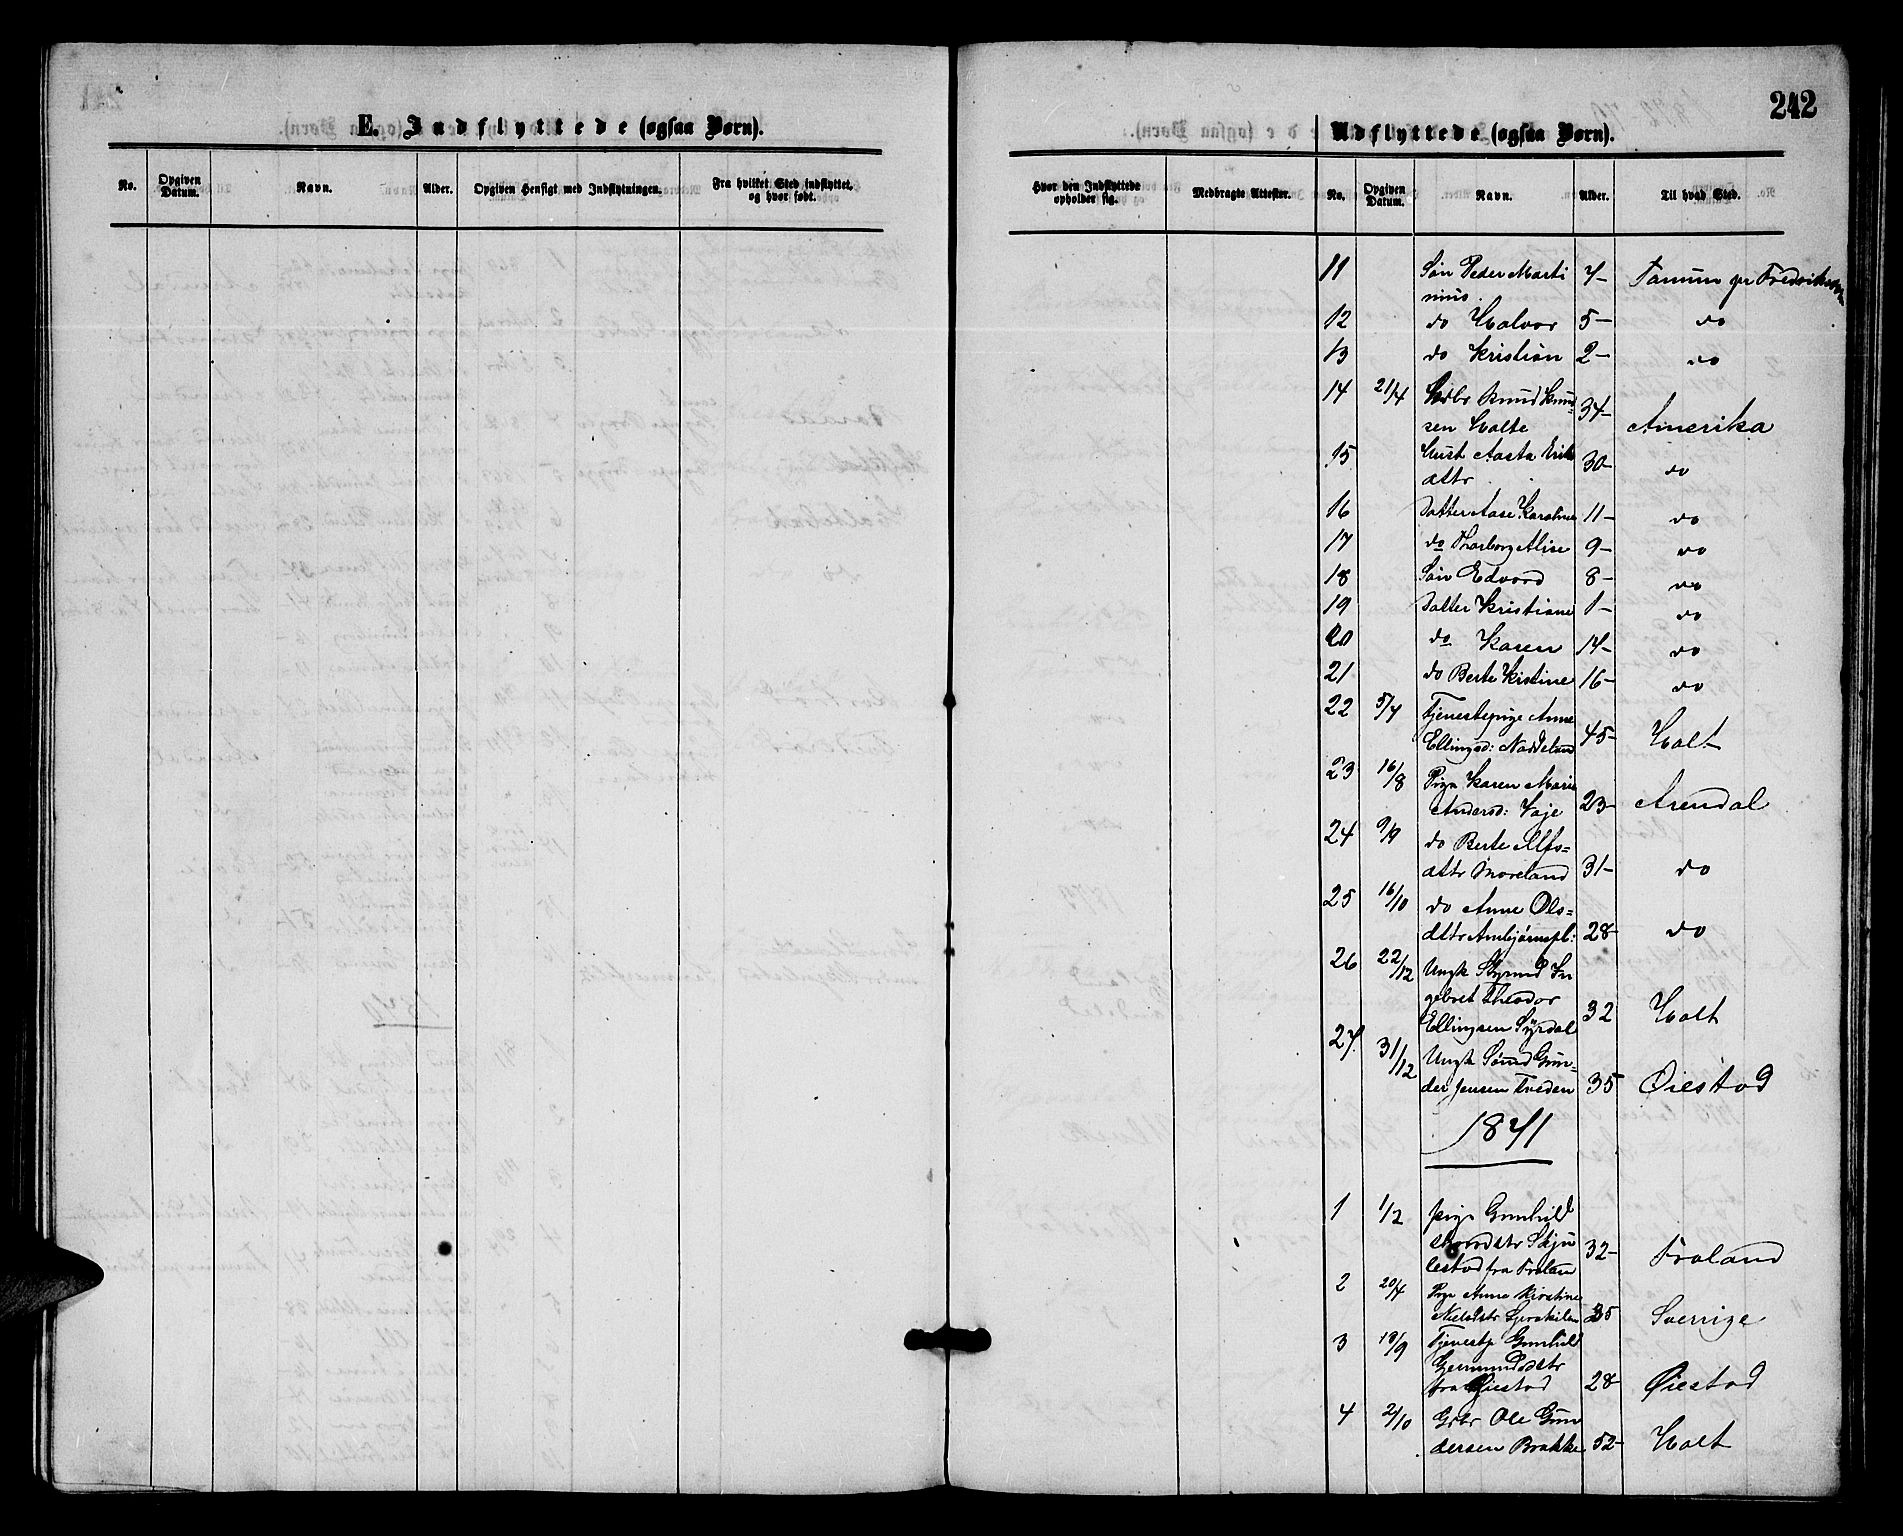 242
E. Indflyttede (ogsaa Børn).
No. Opgiven Datum. Navn. Alder. Opgiven Hensigt med Indflytningen. Fra hvilket Sted indflyttet, og hvor født.
Udflyttede (ogsaa Børn).
Hvor den Indflyttede opholder sig. Medbragte Attester. No. Opgiven Datum. Navn. Alder. Til hvad Sted.
11 Søn Peder Marti 7- Tanum pr Fredrikshald
nius.
12 do Halvor 5- do
13 do Kristian 2- do
14 21/4 Grbr Knud Knud-
sen Holte 34- Amerika
15 Hust Aasta Erik
dttr. 30- do
16 Datter Aase Karoline 11- do
17 do Thorborg Alise 9- do
18 Søn Edvard 8- do
19 Datter Kristiane 1- do
20 do Karen 14- do
21 do Berte Kistine 16- do
22 5/7 Tjenestepige Anne
Ellingsd: Naddeland 45- Holt
23 16/8 Pige Karen Marie
Andersd: Vaje 23- Arendal
24 9/9 do Berte Alfs=
dttr Moreland 31- do
25 16/10 do Anne Ols=
dttr Ambjørnspl: 28- do
26 22/12 Ungk In
gebret Theodor
Ellingsen Syrdal 32 Holt
27. 31/12 Ungk Gun-
der Jensen Tveden 35 Øiestad
1871
1 1/2 pige Gunhild
Skju
lestad fra Froland 32- Froland
2 20/4 Pige Anne Kirstine
Nielsdtr 35 Sverrige
3 18/9 Tjenestp Gunhild
Gjermundsdtr
fra Øiestad 28- Øiestad
4 2/10 Grbr Ole Gun
dersen Brække 52- Holt